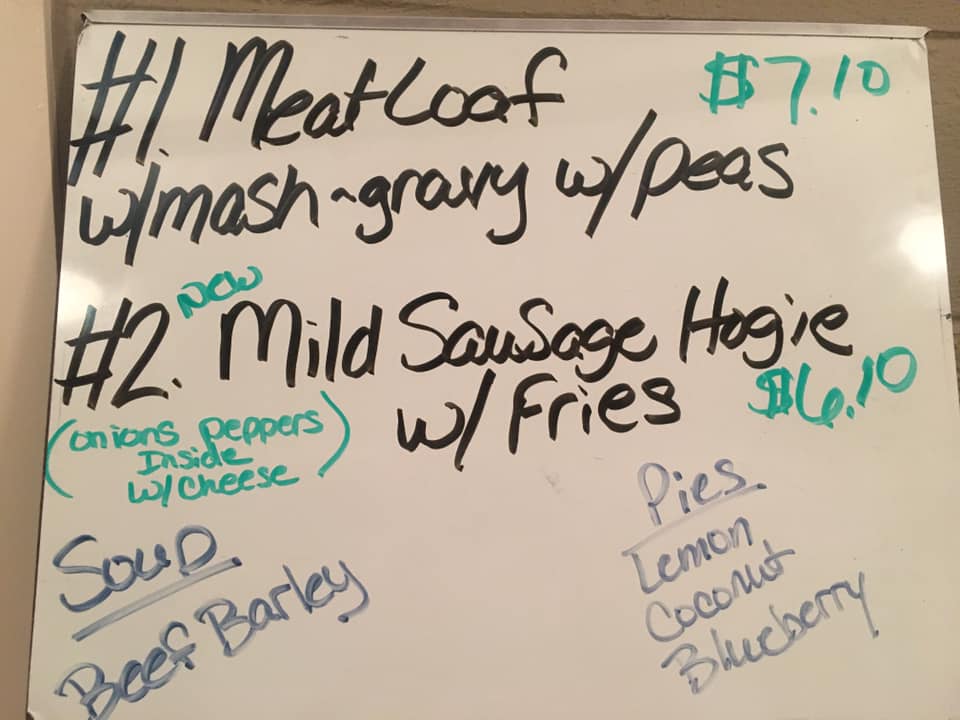 #1. Meatloaf $7.10
w/mash-gravy w/peas
#2. new Mild Sausage Hogie
w/ Fries $6.10
(onions peppers
Inside
w/ cheese)
Soup
Beef Barley
Pies
Lemon
Coconut
Blueberry